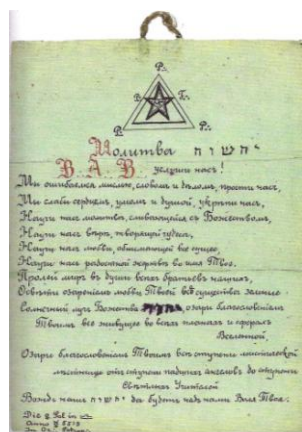 Р.
В. Б.
В. Р.
Молитва יהשוה
В. А. В. услуши насъ!
Мы ошибаемся мыслью, словомъ и дѣломъ, прости насъ,
Мы слабы сердцемъ, умомъ и душой, укрѣпи насъ,
Научи насъ молитвѣ, сливающейся съ Божествомъ,
Научи насъ вѣрѣ, творящей чудеса,
Научи насъ любви, обнимающей все сущее,
Научи насъ радостной жертвѣ во имя Твое.
Пролей миръ въ души всѣхъ братьевъ нашихъ,
любви Твоей всѣ существа
солнечный лучъ Божества озари благословеніемъ
Твоимъ все живущее во всѣхъ планахъ и сферахъ
Вселенной
Озари благословеніемъ Твоимъ всѣ ступени мистической
лѣстницы отъ ступени падшихъ ангеловъ до ступени
Свѣтлыхъ
Вождь нашъ יהשוה да будетъ надъ нами Воля Твоя.
Die
Anno